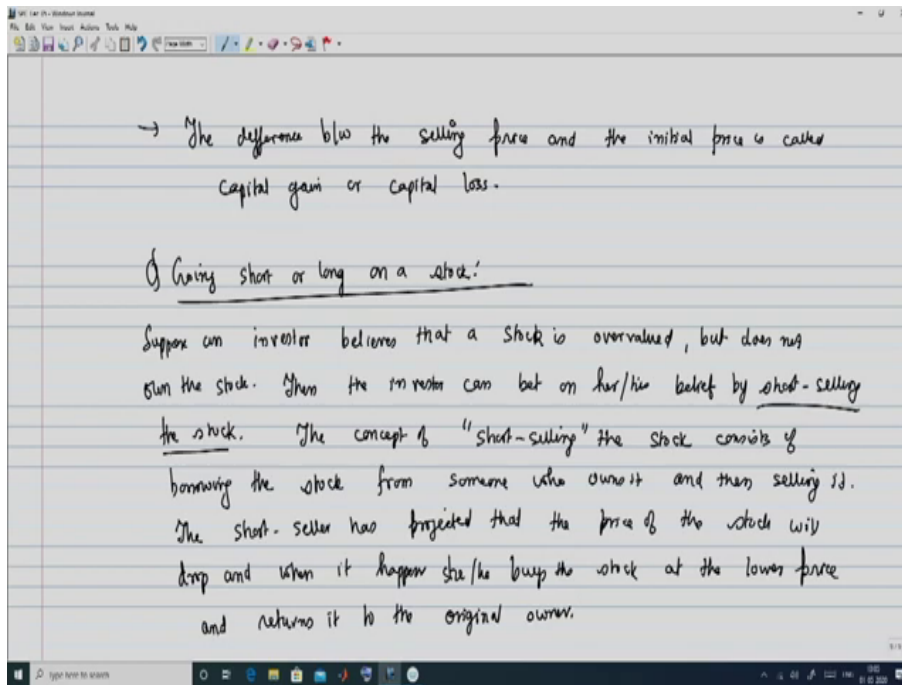 File Edit View Insert Actions Tools Help
→ The difference b/w the selling price and the initial price is called
capital gain or capital loss.
Going short or long on a stock:
Suppose an investor believes that a stock is overvalued, but does not
own the stock. Then the investor can bet on her/his belief by short-selling
the stock. The concept of "short-selling" the stock consists of
borrowing the stock from someone who owns it and then selling it.
The short-seller has projected that the price of the stock will
drop and when it happens she/he buys the stock at the lower price
and returns it to the original owner.
Type here to search